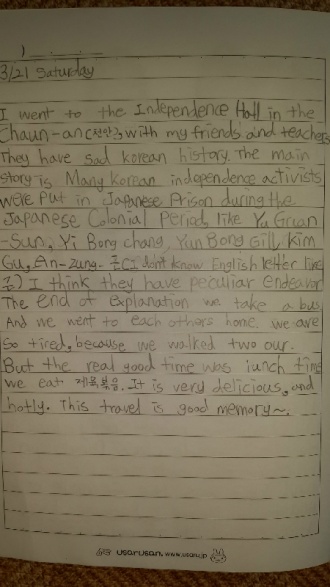 3/21 Saturday
I went to the Independence Hall in the
Chaun-an(천안), with my friends and teachers
They have sad korean history. The main
story is Many Korean independence activists
were put in Japanese Prison during the
Japanese Colonial Period, like Yu Gruan
-Sun, Yi Bong chang, Yun Bong Gill, Kim
Gu, An-zung-근(I don't know English letter like
근) I think they have peculiar endeavor
The end of explanation we take a bus
And we went to each others home. we are
so tired, because we walked two our.
But the real good time was lunch time
we eat 제육볶음. It is very delicious, and
hotly. This travel is good memory~.
usarusan. www.usaru.jp